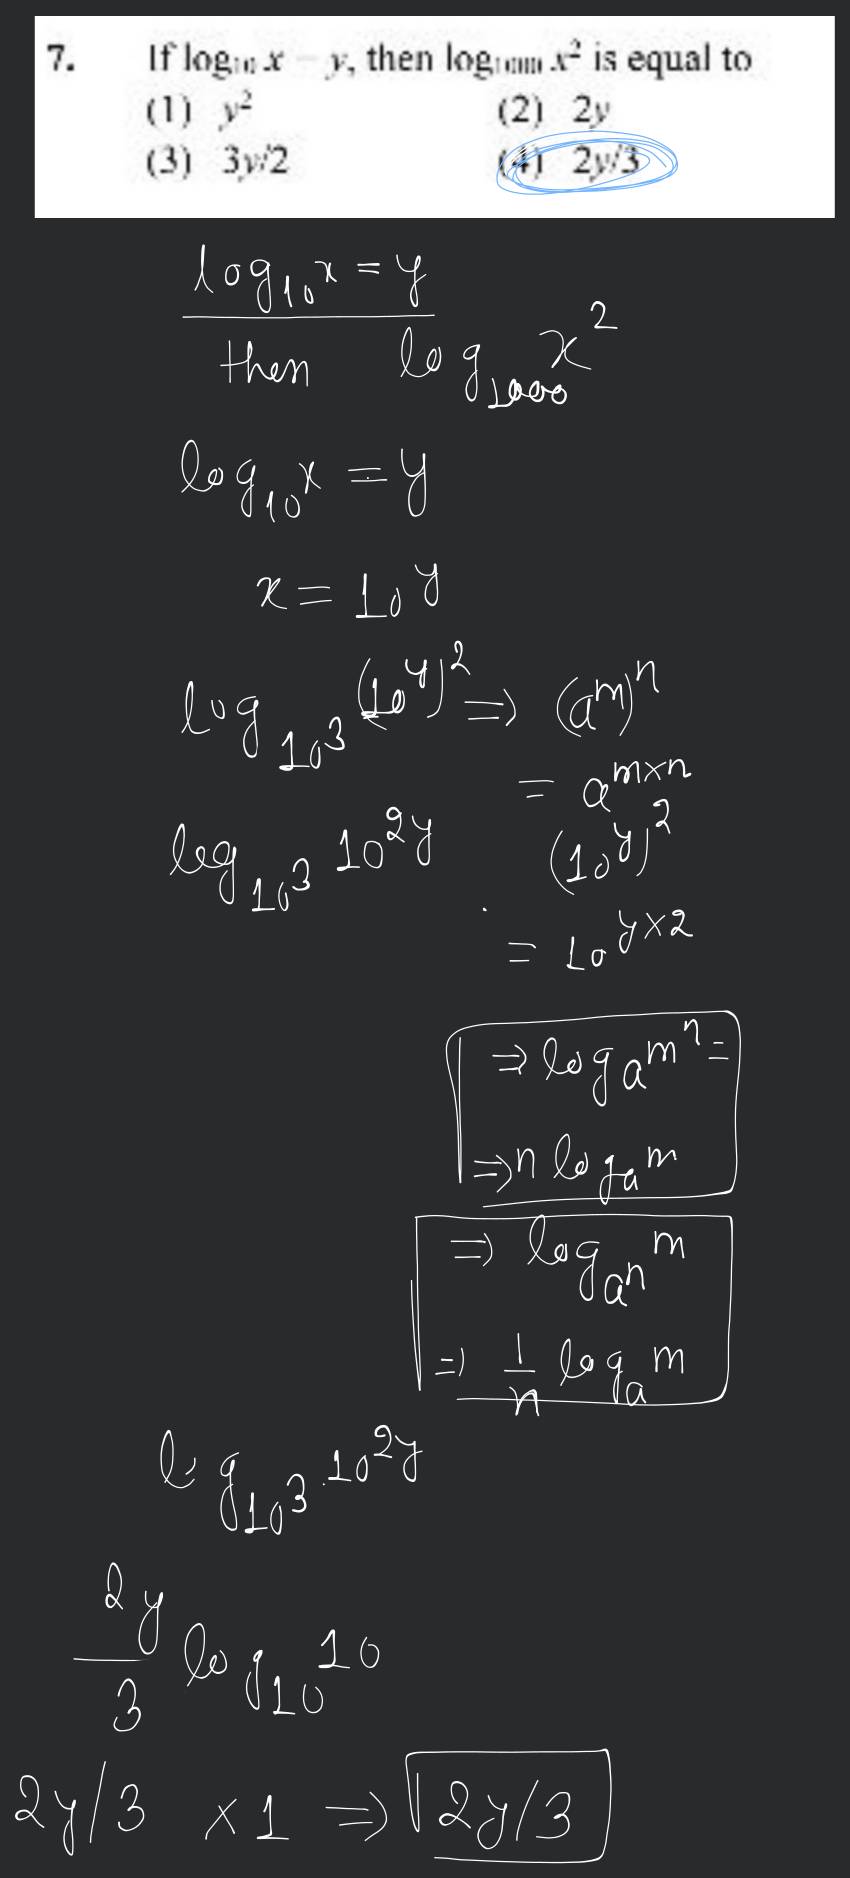 7. If log₁₀ x = y, then log₁₀₀₀ x² is equal to
(1) y² (2) 2y
(3) 3y/2 (4) 2y/3
log₁₀ x = y
then log₁₀₀₀ x²
log₁₀ x = y
x = 10^y
log_10³ (10^y)² ⇒ (a^m)^n
= a^m×n
log_10³ 10^2y (10^y)²
= 10^y×2
⇒ log_a m^n =
⇒ n log_a m
⇒ log_a^n m
⇒ 1/n log_a m
log_10³ 10^2y
2y/3 log₁₀ 10
2y/3 × 1 ⇒ 2y/3